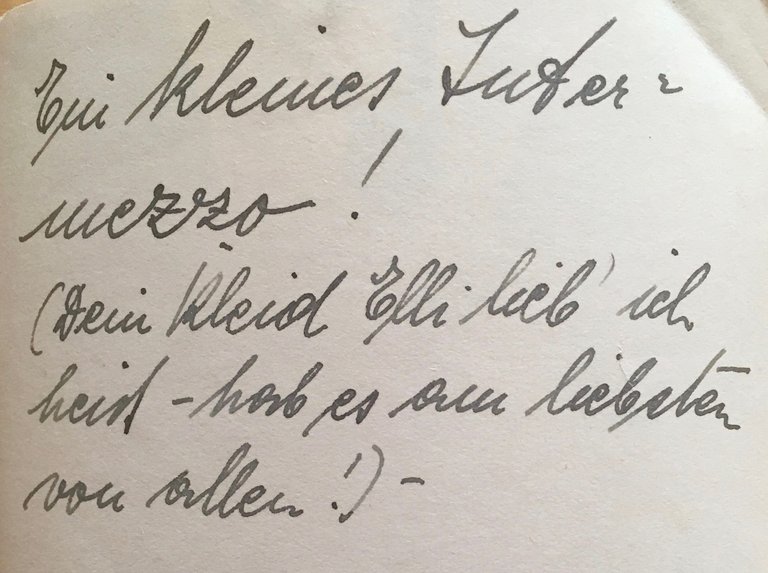 Ein kleines Inter=
mezzo!
(Dein Kleid Elli lieb' ich
heist - hab es am liebsten
von allen!) -